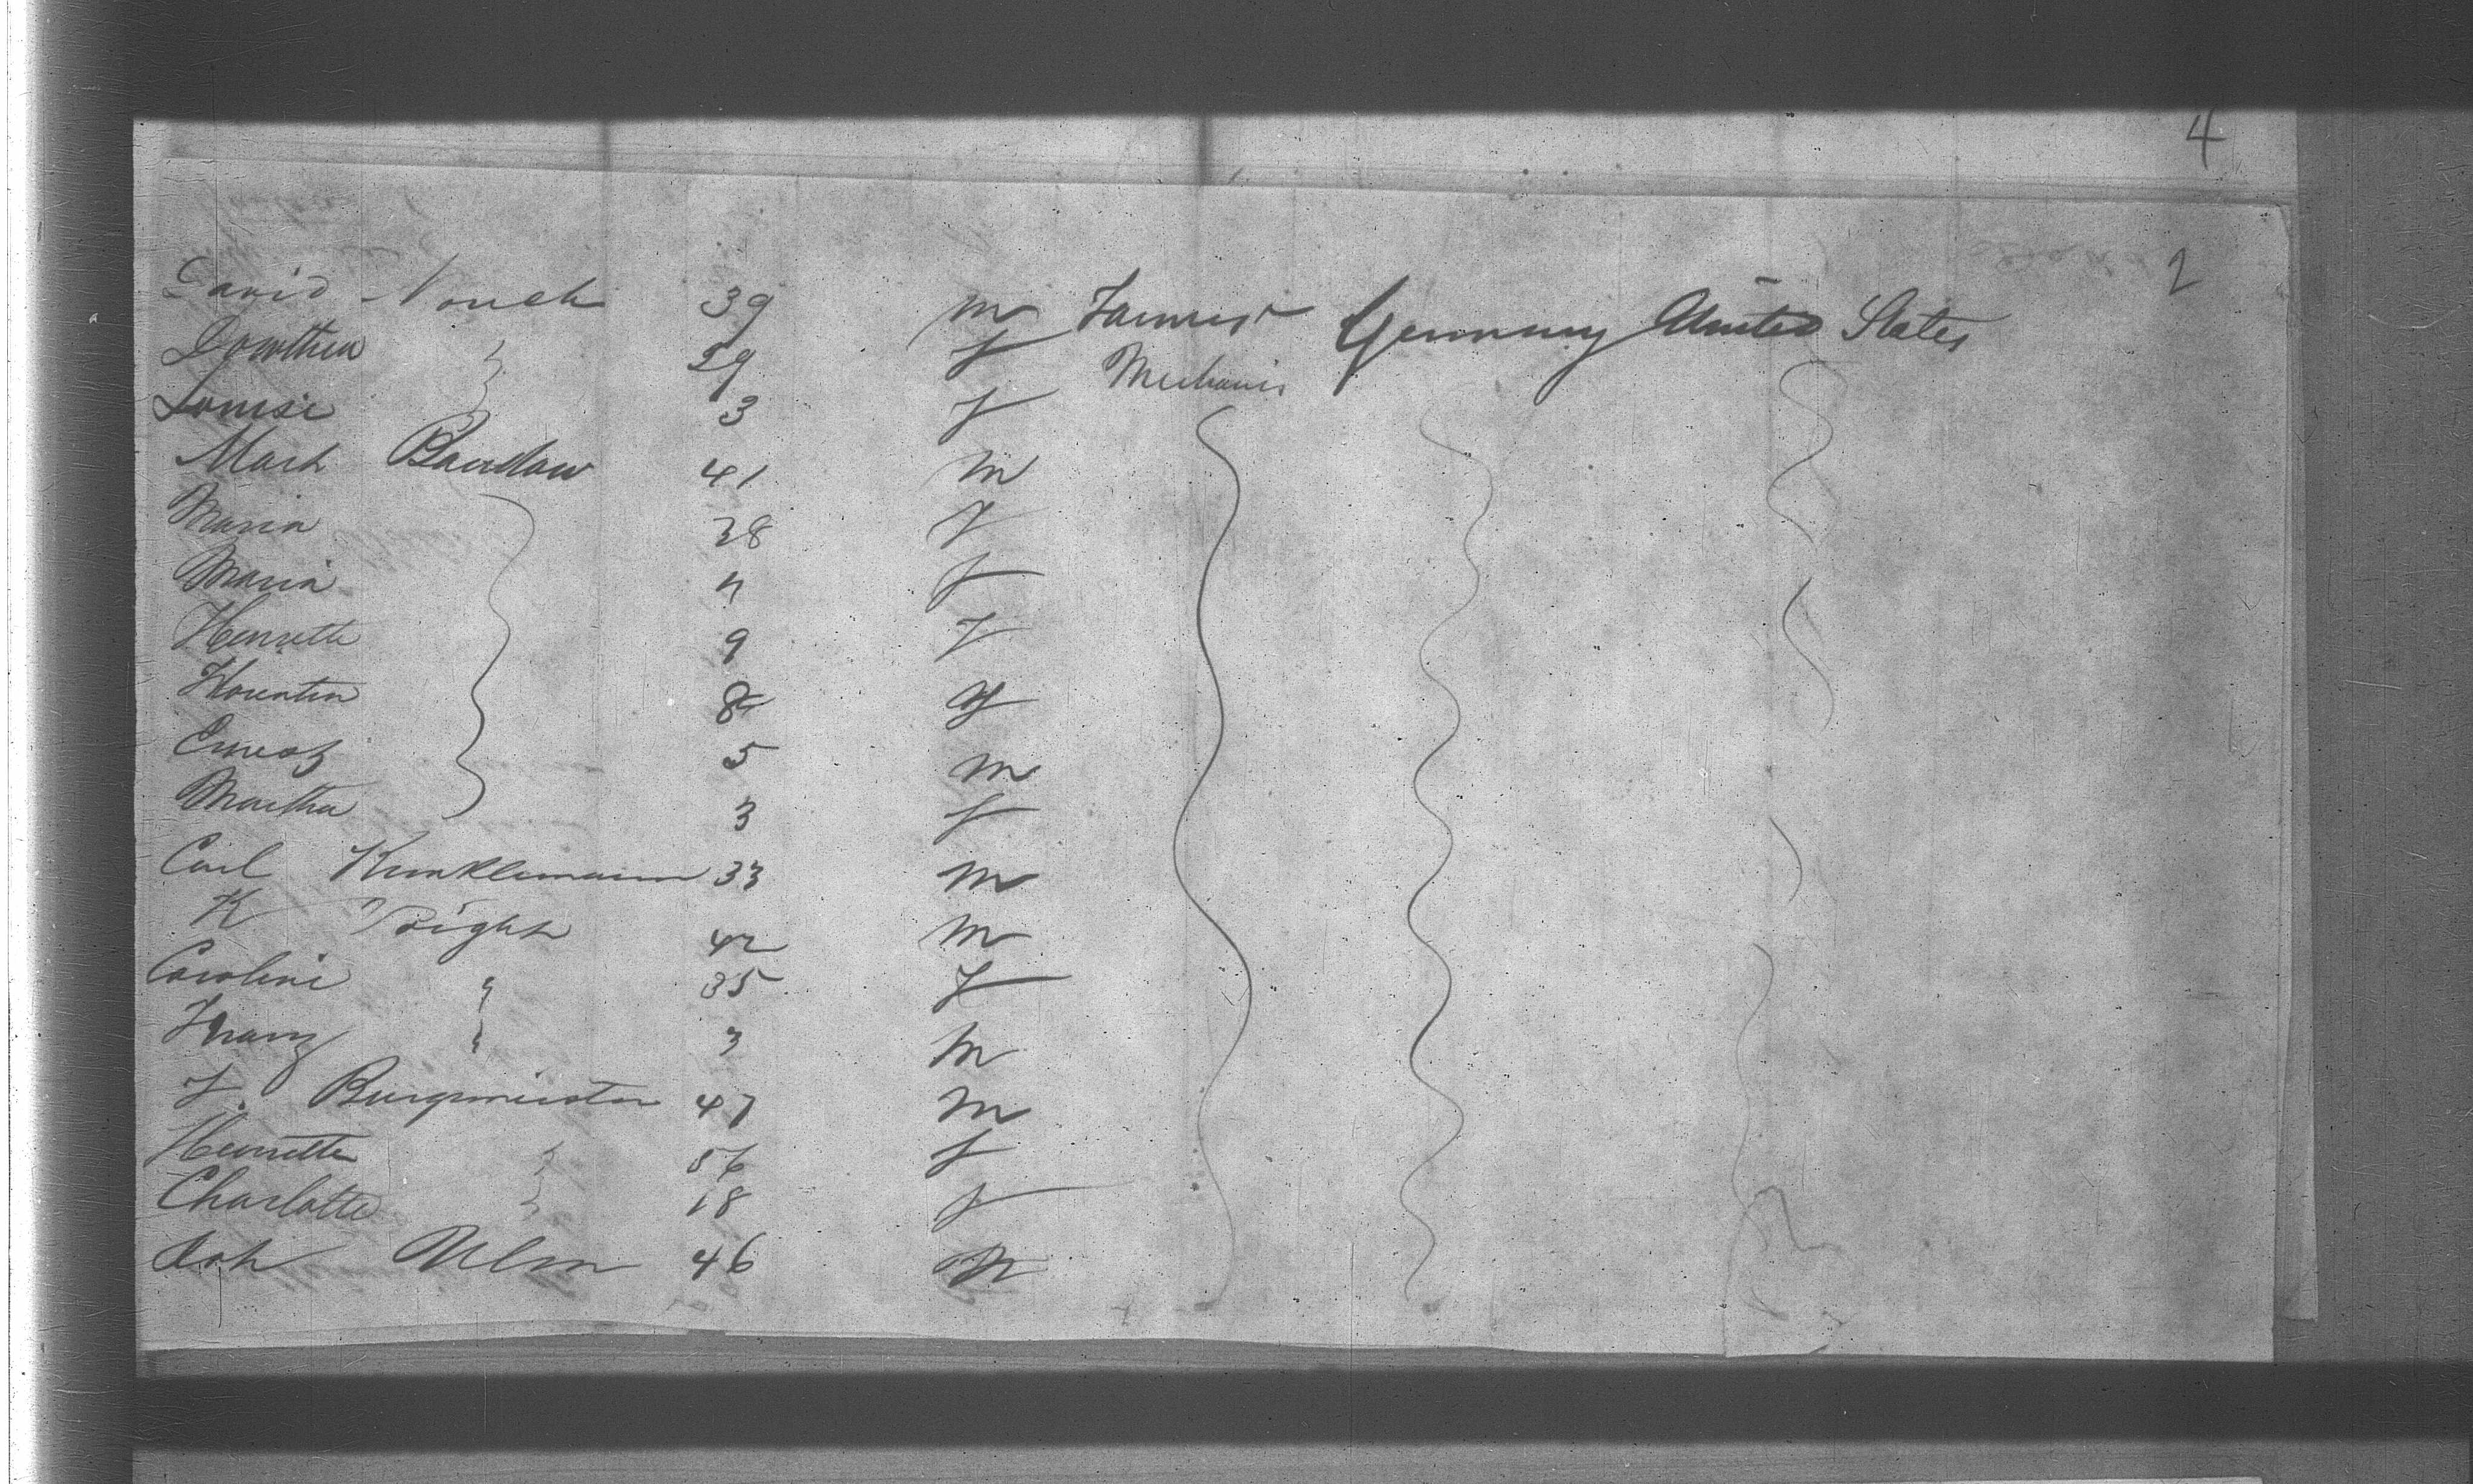 4
2
David 39 m Farmers Germany United States
Dorothea " 29 f Mechanics
Louise " 3 f
41 m
Maria 38 f
Maria 11 f
Henrette 9 f
8 f
Ernest 5 m
Martha 3 f
Carl Kunklemann 33 m
K Voight 42 m
Caroline " 35 f
Franz " 3 m
F. Burgmeister 47 m
Henrette " 56 f
Charlotte " 18 f
Joh Ulm 46 m